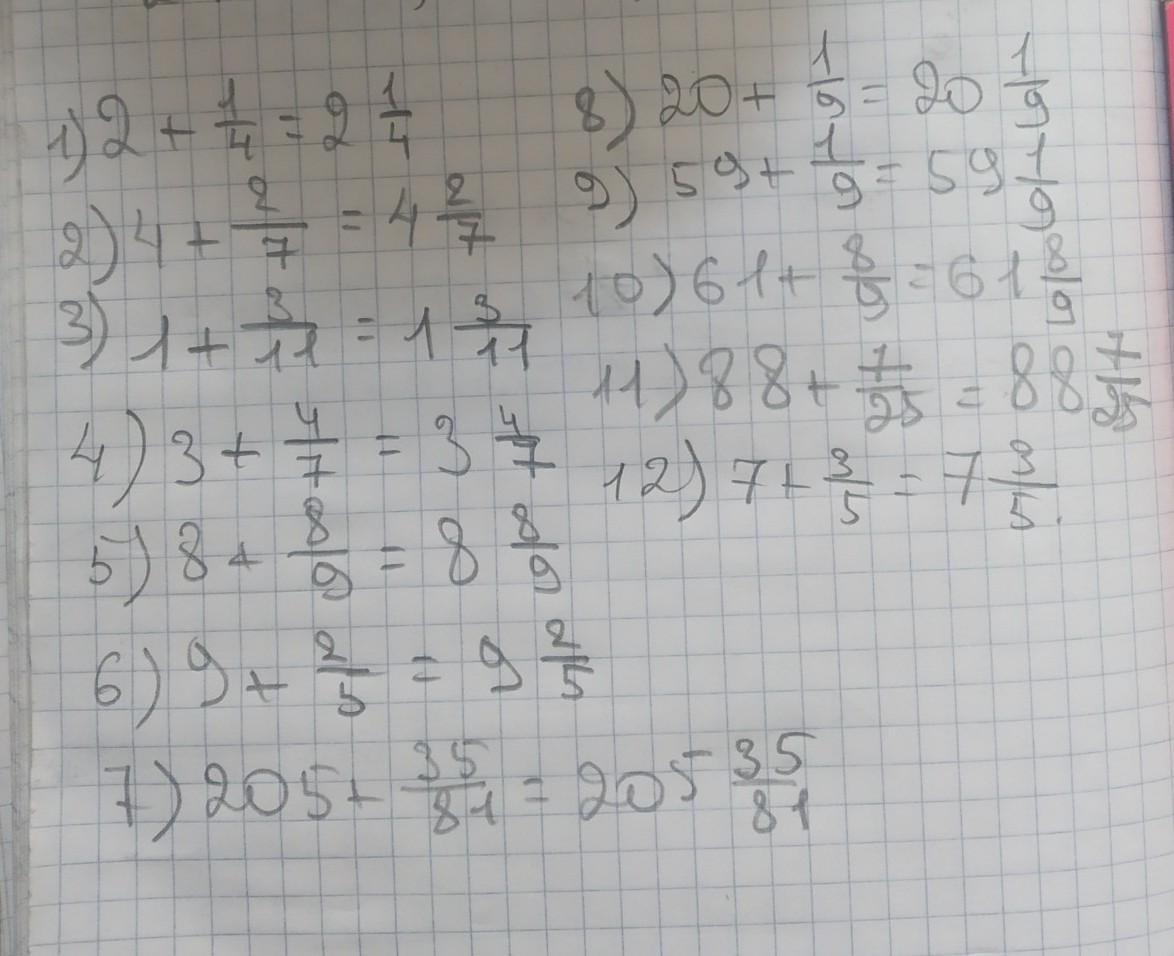 1) 2 + 1/4 = 2 1/4
2) 4 + 2/7 = 4 2/7
3) 1 + 3/11 = 1 3/11
4) 3 + 4/7 = 3 4/7
5) 8 + 8/9 = 8 8/9
6) 9 + 2/5 = 9 2/5
7) 205 + 35/81 = 205 35/81
8) 20 + 1/9 = 20 1/9
9) 59 + 1/9 = 59 1/9
10) 61 + 8/9 = 61 8/9
11) 88 + 7/25 = 88 7/25
12) 7 + 3/5 = 7 3/5.